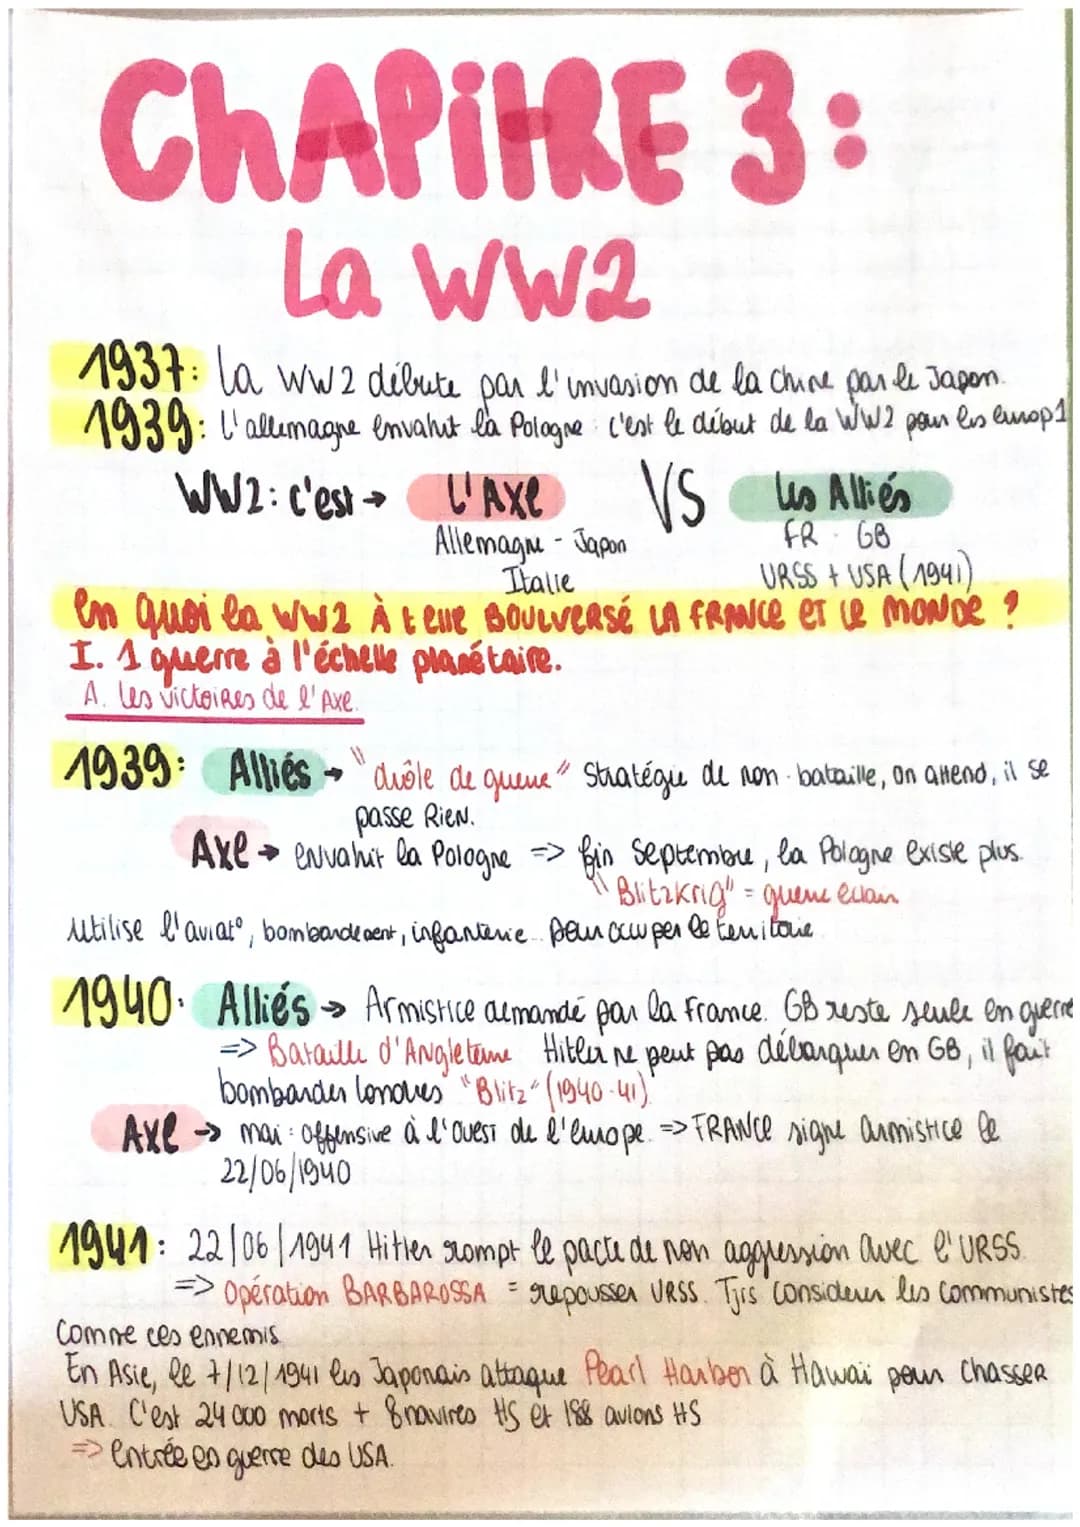 ChAPitRE 3:
La WW2
1937: La WW2 débute par l'invasion de la Chine par le Japon.
1939: L'allemagne envahit la Pologne : c'est le début de la WW2 pour les europ1
WW2: c'est → L'AXe VS Les Alliés
Allemagne - Japon FR - GB
Italie URSS + USA (1941)
En Quoi la WW2 À t elle BOULVERSÉ LA FRANCE ET LE MONDE ?
I. 1 guerre à l'échelle planétaire.
A. Les victoires de l'Axe.
1939: Alliés → "drôle de guerre" Stratégie de non-bataille, on attend, il se
passe Rien.
Axe → envahit la Pologne => fin Septembre, la Pologne existe plus.
"Blitzkrig" = guerre éclair
Utilise l'aviat°, bombardement, infanterie... pour occuper le territoire
1940: Alliés → Armistice demandé par la France. GB reste seule en guerre
=> Bataille d'Angleterre Hitler ne peut pas débarquer en GB, il fait
bombarder Londres "Blitz" (1940-41)
Axe → mai : offensive à l'ouest de l'europe. => FRANCE signe armistice le
22/06/1940
1941: 22/06/1941 Hitler rompt le pacte de non aggression avec l'URSS.
=> Opération BARBAROSSA = repousser URSS. Tjrs considerer les communistes
Comme ces ennemis
En Asie, le 7/12/1941 les Japonais attaque Pearl Harbor à Hawaï pour chasser
USA. C'est 24 000 morts + 8 navires HS et 188 avions HS
=> Entrée en guerre des USA.